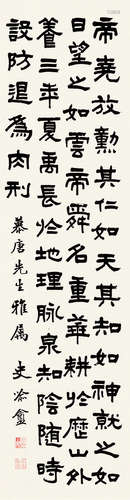 帝堯放勳其仁如天其知如神就之如
日望之如雲帝舜名重華耕於歷山外
養三年夏禹長於地理脉泉知陰隨時
設防退為肉刑 慕唐先生雅屬 史喻盦